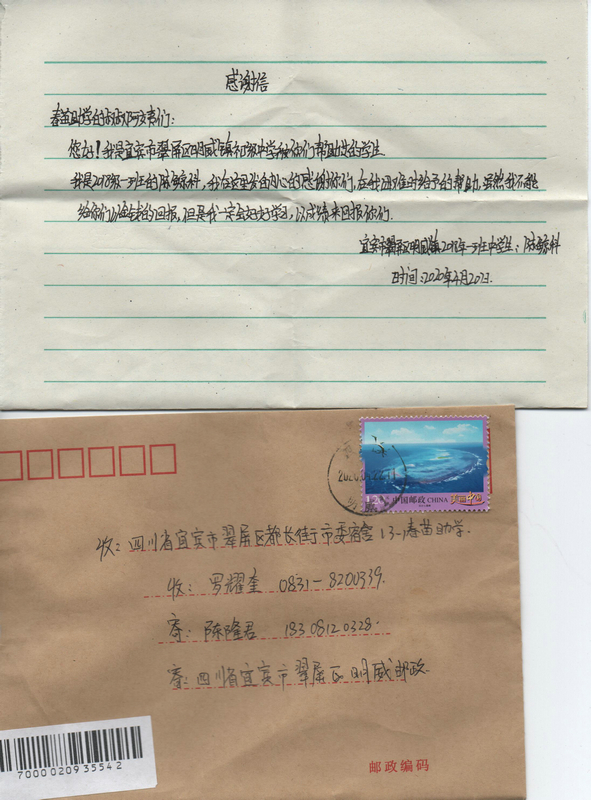 感谢信
春苗助学的叔叔阿姨们：
您好！我是宜宾市翠屏区明威镇初级中学被你们帮助过的学生
我是2018级一班的，我在这里发自内心的感谢你们，在我困难时给予的帮助。虽然我不能
给你们以金钱的回报，但是我一定会好好学习，以成绩来回报你们.
宜宾市翠屏区明威镇2018年一班中学生：
时间：2020年4月20日.
2020.04.22.11
1.20元
中国邮政 CHINA
美丽中国
收：四川省宜宾市翠屏区都长街市委宿舍13-1春苗助学.
收：罗耀奎 0831-8200339.
寄：陈隆君 18308120328.
寄：四川省宜宾市翠屏区明威邮政.
7000020935542
邮政编码